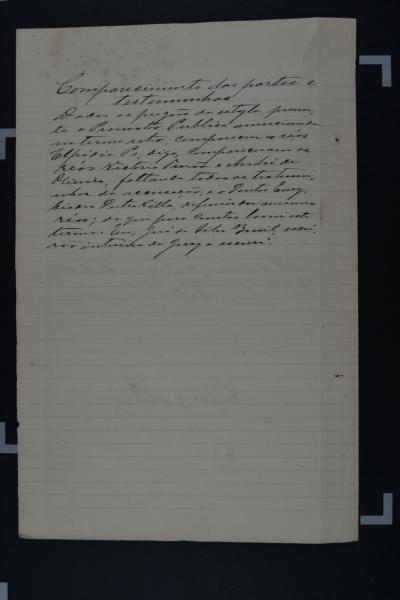 Comparecimento das partes e
testemunhas
Dados os pregões do estylo, presen-
te o Promotor Publico
no termo retro, compareceu o réo
Elpidio Pe, digo, compareceram os
réos Victorio e André de
Oliveira, faltando todas as testemu-
nhas de accusação, e o Doutor
defensor dos mesmos
réos; do que para constar lavrei este
termo. Eu, José da Silva escri-
vão interino do Jury o escrevi.